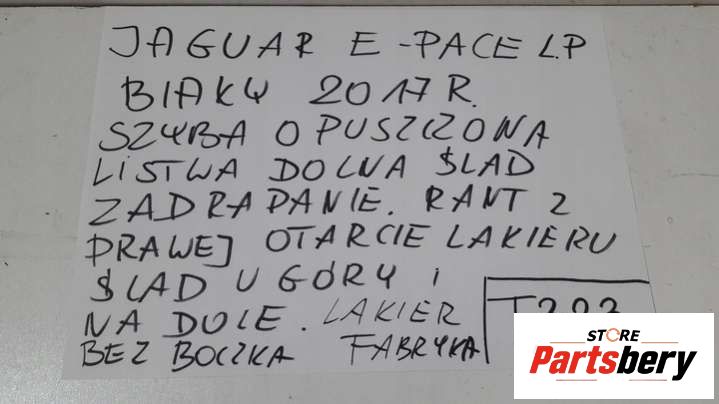 JAGUAR E-PACE L.P
BIAŁY 2017 R.
SZYBA OPUSZCZONA
LISTWA DOLNA ŚLAD
ZADRAPANIE. RANT Z
PRAWEJ OTARCIE LAKIERU
ŚLAD U GÓRY i
NA DOLE. LAKIER
BEZ BOCZKA FABRYKA
STORE
Partsbery